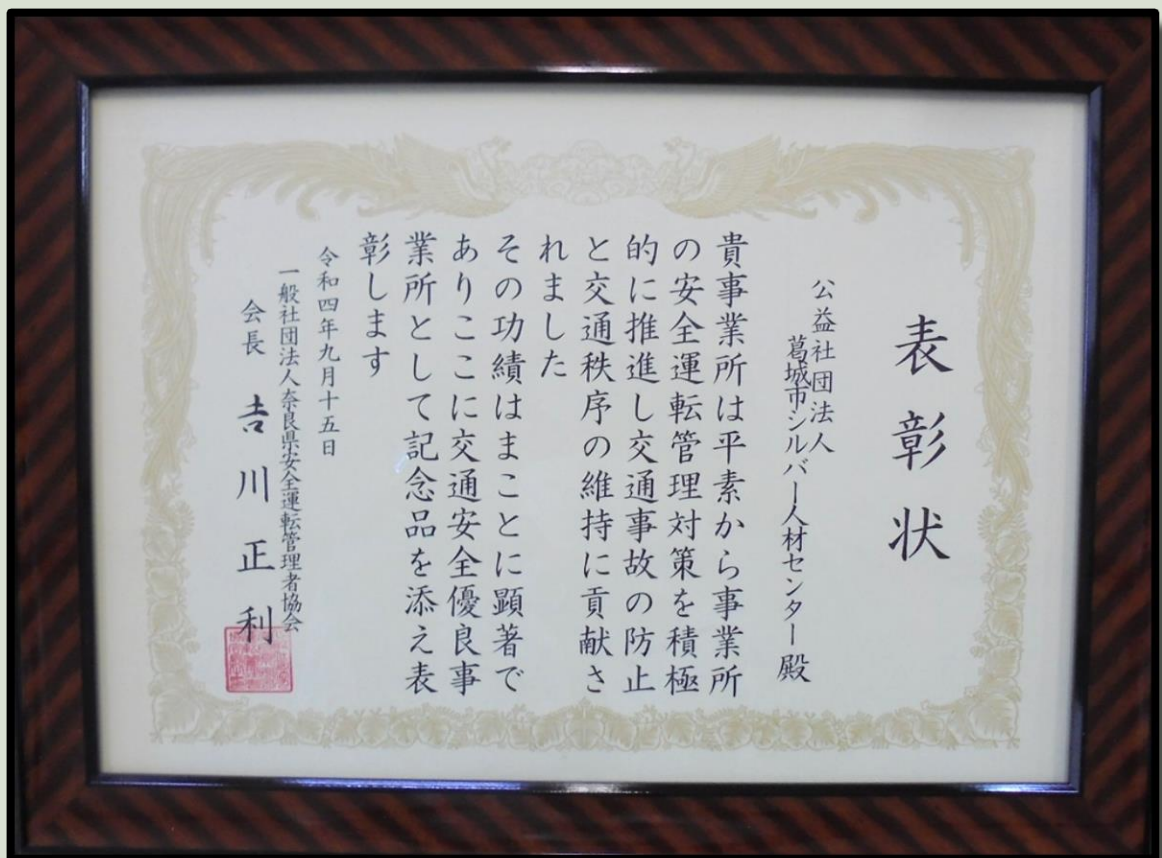 表彰状
公益社団法人
葛城市シルバー人材センター殿
貴事業所は平素から事業所
の安全運転管理対策を積極
的に推進し交通事故の防止
と交通秩序の維持に貢献さ
れました
その功績はまことに顕著で
ありここに交通安全優良事
業所として記念品を添え表
彰します
令和四年九月十五日
一般社団法人奈良県安全運転管理者協会
会長 𠮷川正利